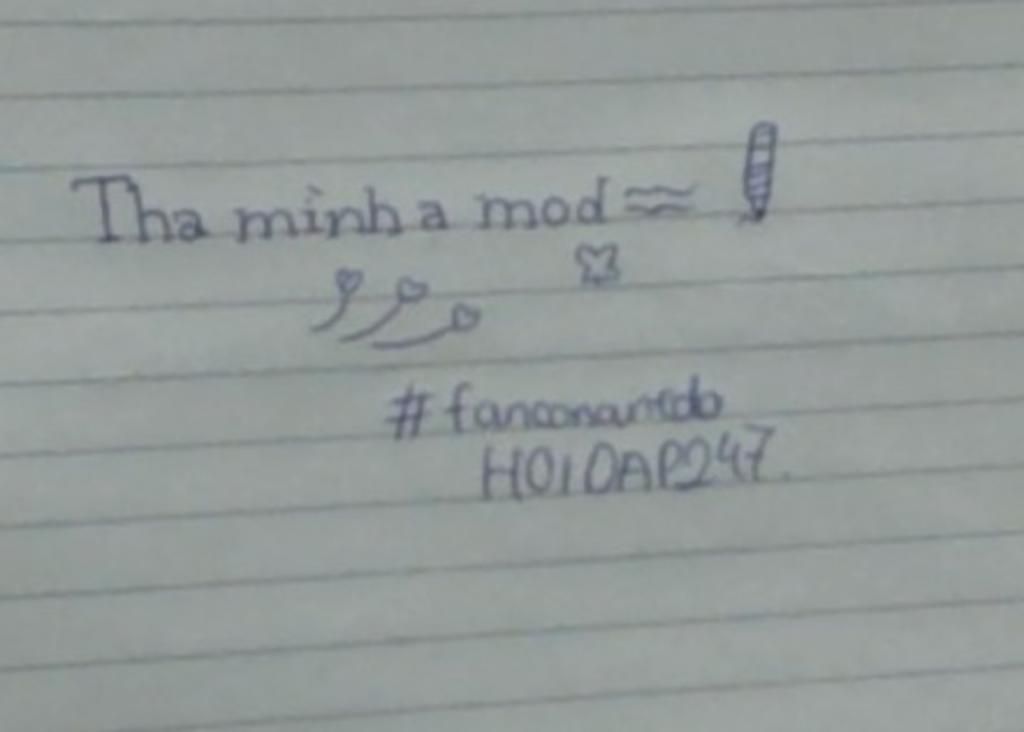 Tha minh a mod ≈
#fanconanedo
HOIDAP247.